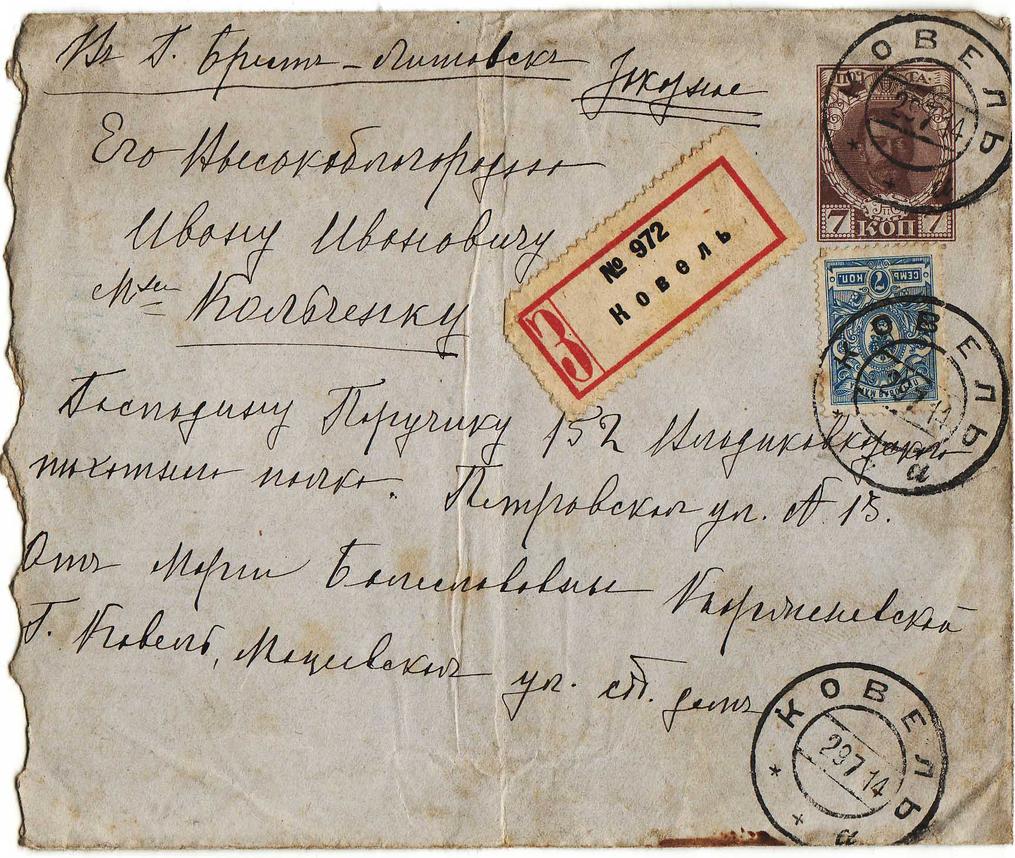 Въ Г. Брестъ-Литовскъ
Заказное
Его Высокоблагородию
Ивану Ивановичу
Кольченку
Господину Поручику 152 Владикавказскаго
пѣхотнаго полка. Петровская ул. № 13.
Отъ Маріи Болеславовны
Г. Ковель, Мацѣевская ул. домъ
№ 972
Ковель
З
ПОЧТА
7 КОП 7
СЕМЬ 7 КОП.
КОВЕЛЬ
КОВЕЛЬ
КОВЕЛЬ
29 7 14
а